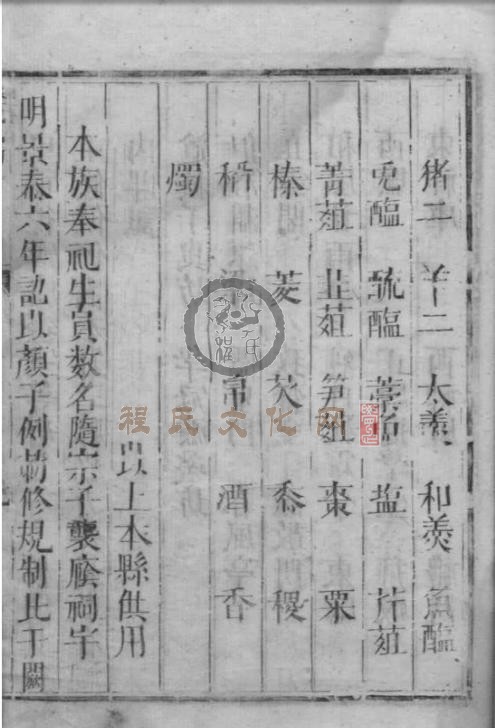 猪二 羊二 太羹 和羮 魚醢
兎醢 醓醢 藁魚 塩 芹葅
菁葅 韭葅 笋葅 棗 栗
榛 菱 芡 黍 稷
稻 粱 帛 酒 香
燭
以上本縣供用
本族奉祀生員数名隨宗子襲廕祠宇
明景泰六年詔以顏子例勅修規制比于闕
程氏文化网